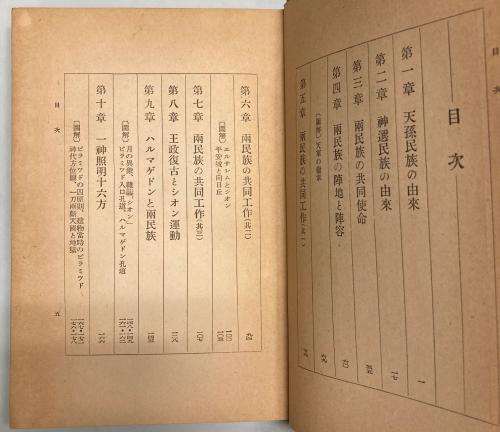 目次
目次
第一章 天孫民族の由來 一
第二章 神選民族の由來 一七
第三章 兩民族の共同使命
第四章 兩民族の陣地と陣容 六〇
〔圖解〕天軍の徽章 六九
第五章 兩民族の共同工作(其一)
第六章 兩民族の共同工作(其二) 九四
〔圖解〕エルサレムとシオン 一〇〇
平安城と向日丘 一〇五
第七章 兩民族の共同工作(其三) 一〇七
第八章 王政復古とシオン運動 一二八
第九章 ハルマゲドンと兩民族 一四三
〔圖解〕月の異象、「シオン」
ピラミツド入口孔道、「ハルマゲドン孔道
第十章 一神照明十六方
〔圖解〕ピラミツドの四原則、建物當時のピラミツド
神代方位圖、一刀兩斷天國と地獄
目次 五